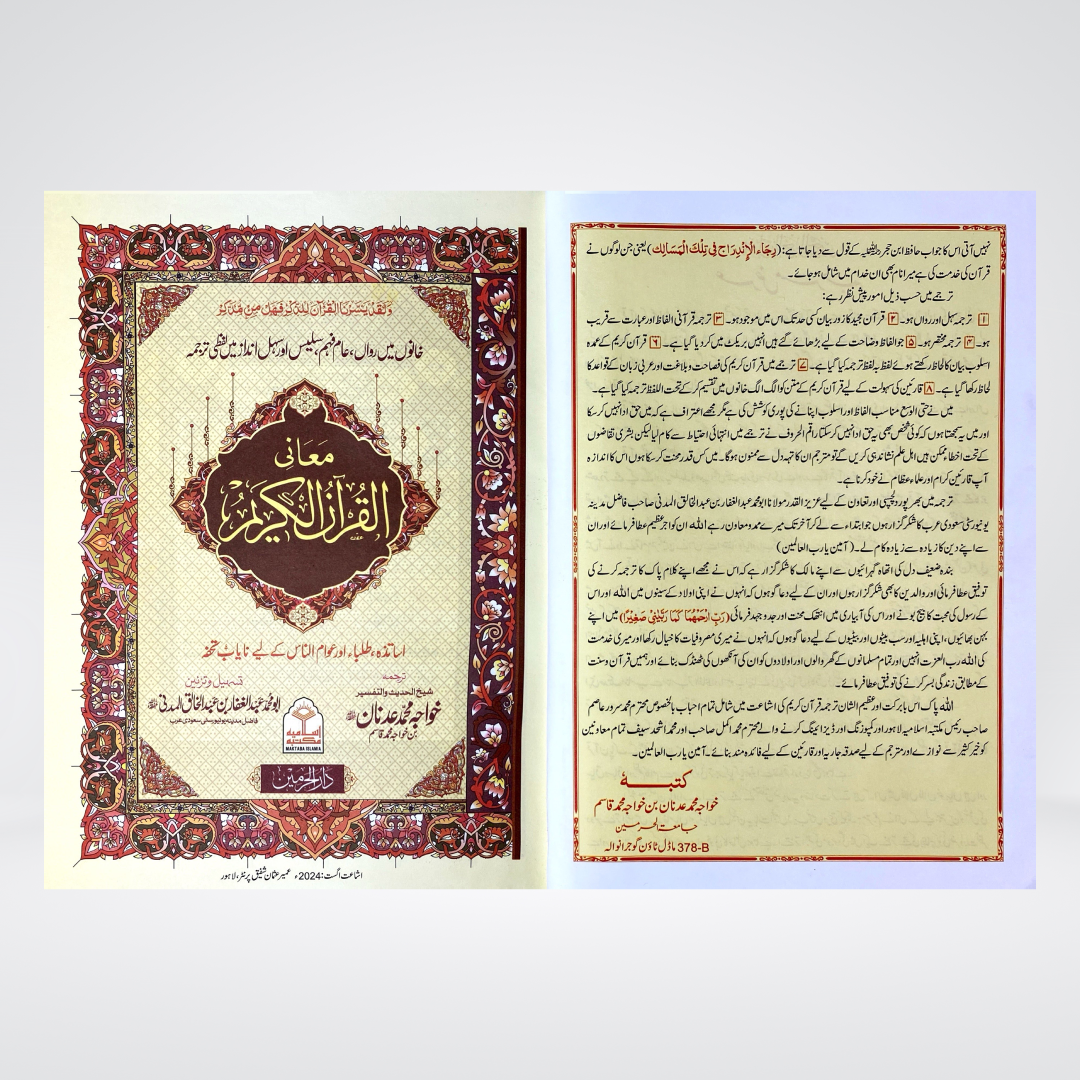 وَلَقَدْ يَسَّرْنَا الْقُرْآنَ لِلذِّكْرِ فَهَلْ مِنْ مُّدَّكِرٍ
خانوں میں رواں، عام فہم، سلیس اور سہل انداز میں لفظی ترجمہ
معانی
القرآن الکریم
اساتذہ، طلباء اور عوام الناس کے لیے نایاب تحفہ
ترجمہ
شیخ الحدیث والتفسیر
خواجہ محمد عدنان
بن خواجہ محمد قاسم
تسہیل و تزئین
ابو محمد عبدالغفار بن عبدالخالق المدنی
فاضل مدینہ یونیورسٹی سعودی عرب
مکتبہ اسلامیہ
MAKTABA ISLAMIA
دار الحرمین
اشاعت اگست: 2024ء عمیر عثمان شفیق پرنٹر، لاہور
نہیں آتی اس کا جواب حافظ ابن حجر رحمہ اللہ کے قول سے دیا جاتا ہے: (رِجَاءَ الْاِنْدِرَاجِ فِي تِلْكَ الْمَسَالِكِ) یعنی جن لوگوں نے
قرآن کی خدمت کی ہے میرا نام بھی ان خدام میں شامل ہو جائے۔
ترجمے میں حسب ذیل امور پیش نظر رہے:
۱ ترجمہ سہل اور رواں ہو۔ ۲ قرآن مجید کا زور بیان کسی حد تک اس میں موجود ہو۔ ۳ ترجمہ قرآنی الفاظ اور عبارت سے قریب
ہو۔ ۴ ترجمہ مختصر ہو۔ ۵ جو الفاظ وضاحت کے لیے بڑھائے گئے ہیں انہیں بریکٹ میں کر دیا گیا ہے۔ ۶ قرآن کریم کے عمدہ
اسلوب بیان کا لحاظ رکھتے ہوئے لفظ بہ لفظ ترجمہ کیا گیا ہے۔ ۷ ترجمے میں قرآن کریم کی فصاحت و بلاغت اور عربی زبان کے قواعد کا
لحاظ رکھا گیا ہے۔ ۸ قارئین کی سہولت کے لیے قرآن کریم کے متن کو الگ الگ خانوں میں تقسیم کر کے تحت اللفظ ترجمہ کیا گیا ہے۔
میں نے حتی الوسع مناسب الفاظ اور اسلوب اپنانے کی پوری کوشش کی ہے مگر مجھے اعتراف ہے کہ میں حق ادا نہیں کر سکا
اور میں یہ سمجھتا ہوں کہ کوئی شخص بھی یہ حق ادا نہیں کر سکتا راقم الحروف نے ترجمے میں انتہائی احتیاط سے کام لیا لیکن بشری تقاضوں
کے تحت اخطا ممکن ہیں اہل علم نشاندہی کریں گے تو مترجم ان کا تہہ دل سے ممنون ہو گا۔ میں کس قدر محنت کر سکا ہوں اس کا اندازہ
آپ قارئین کرام اور علماء عظام نے خود کرنا ہے۔
ترجمہ میں بھرپور دلچسپی اور تعاون کے لیے عزیز القدر مولانا ابو محمد عبدالغفار بن عبدالخالق المدنی صاحب فاضل مدینہ
یونیورسٹی سعودی عرب کا شکر گزار ہوں جو ابتداء سے لے کر آخر تک میرے ممد و معاون رہے اللہ ان کو اجر عظیم عطا فرمائے اور ان
سے اپنے دین کا زیادہ سے زیادہ کام لے۔ (آمین یا رب العالمین)
بندہ ضعیف دل کی اتھاہ گہرائیوں سے اپنے مالک کا شکر گزار ہے کہ اس نے مجھے اپنے کلام پاک کا ترجمہ کرنے کی
توفیق عطا فرمائی اور والدین کا بھی شکر گزار ہوں اور ان کے لیے دعا گو ہوں کہ انہوں نے اپنی اولاد کے سینوں میں اللہ اور اس
کے رسول کی محبت کا بیج بونے اور اس کی آبیاری میں انتھک محنت اور جدوجہد فرمائی (رَبِّ ارْحَمْهُمَا كَمَا رَبَّيٰنِيْ صَغِيْرًا) میں اپنے
بہن بھائیوں، اپنی اہلیہ اور سب بیٹوں اور بیٹیوں کے لیے دعا گو ہوں کہ انہوں نے میری مصروفیات کا خیال رکھا اور میری خدمت
کی اللہ رب العزت انہیں اور تمام مسلمانوں کے گھر والوں اور اولادوں کو ان کی آنکھوں کی ٹھنڈک بنائے اور ہمیں قرآن و سنت
کے مطابق زندگی بسر کرنے کی توفیق عطا فرمائے۔
اللہ پاک اس بابرکت اور عظیم الشان ترجمہ قرآن کریم کی اشاعت میں شامل تمام احباب بالخصوص محترم محمد سرور عاصم
صاحب رئیس مکتبہ اسلامیہ لاہور اور کمپوزنگ اور ڈیزائننگ کرنے والے محترم محمد اکمل صاحب اور محمد اشجد سیف تمام معاونین
کو خیر کثیر سے نوازے اور مترجم کے لیے صدقہ جاریہ اور قارئین کے لیے فائدہ مند بنائے۔ آمین یا رب العالمین۔
کتبہ
خواجہ محمد عدنان بن خواجہ محمد قاسم
جامعۃ الحرمین
378-B ماڈل ٹاؤن گوجرانوالہ